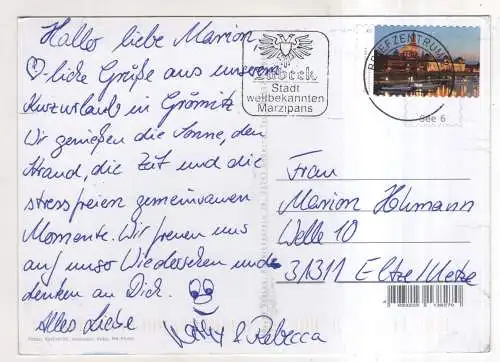 Hallo liebe Marion
♡-liche Grüße aus unserem
Kurzurlaub in Grömitz.
Wir genießen die Sonne, den
Strand, die Zeit und die
stressfreien gemeinsamen
Momente. Wir freuen uns
auf unser Wiedersehen und
denken an Dich.
Alles Liebe
& Rebecca
Lübeck
Stadt
weltbekannten
Marzipans
BRIEFZENTRUM
Frau
Marion
Welle 10
31311 Eltze/Uetze